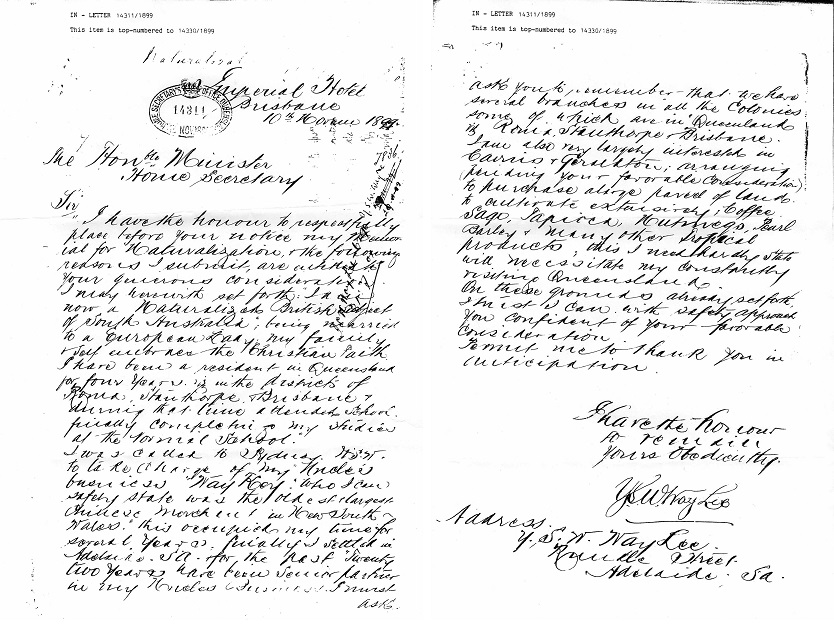 IN - LETTER 14311/1899
This item is top-numbered to 14330/1899
Naturalizat
Imperial Hotel
Brisbane
10th Novem 1899
HOME SECRETARY'S OFFICE
14311
NOV
The Honble Minister
Home Secretary
Sir
I have the honour to respectfully
place before your notice my Memor
ial for Naturalization, & the following
reasons I submit, are
your generous consideration
I may herewith set forth: I am
now a Naturalized British Subject
of South Australia; being married
to a European Lady, my family
& Self embrace the Christian Faith
I have been a resident in Queensland
for four Years. in the districts of
Roma, Stanthorpe & Brisbane &
during that time attended School.
finally completing my Studies
at the Normal School."
I was called to Sydney N.S.W.
to take Charge of my Uncle's
business "Way Kee". Who I can
safely state was the Oldest & largest
Chinese Merchant in New South
Wales." this occupied my time for
several Years. finally I settled in
Adelaide. S.A. for the past Twenty
two Years have been Senior partner
in my Uncles Business. I must
ask.
IN - LETTER 14311/1899
This item is top-numbered to 14330/1899
ask you to remember that we have
several branches in all the Colonies
some of which are in Queensland
Roma, Stanthorpe & Brisbane.
I am also very largely interested in
Cairns & Geraldton; arranging
(pending your favorable consideration)
to purchase a large parcel of land.
to cultivate extensively; Coffee
Sago, Tapioca, Nutmegs, Pearl
Barley & many other tropical
products, this I need hardly state
will necessitate my constantly
visiting Queensland.
On these grounds already set forth
I trust I can with safety approach
You confident of Your favorable
Consideration.
Permit me to thank You in
anticipation.
I have the honour
to remain
Yours Obediently.
Y S W Way Lee
Address.
Y. S. W. Way Lee.
Rundle Street.
Adelaide. Sa.